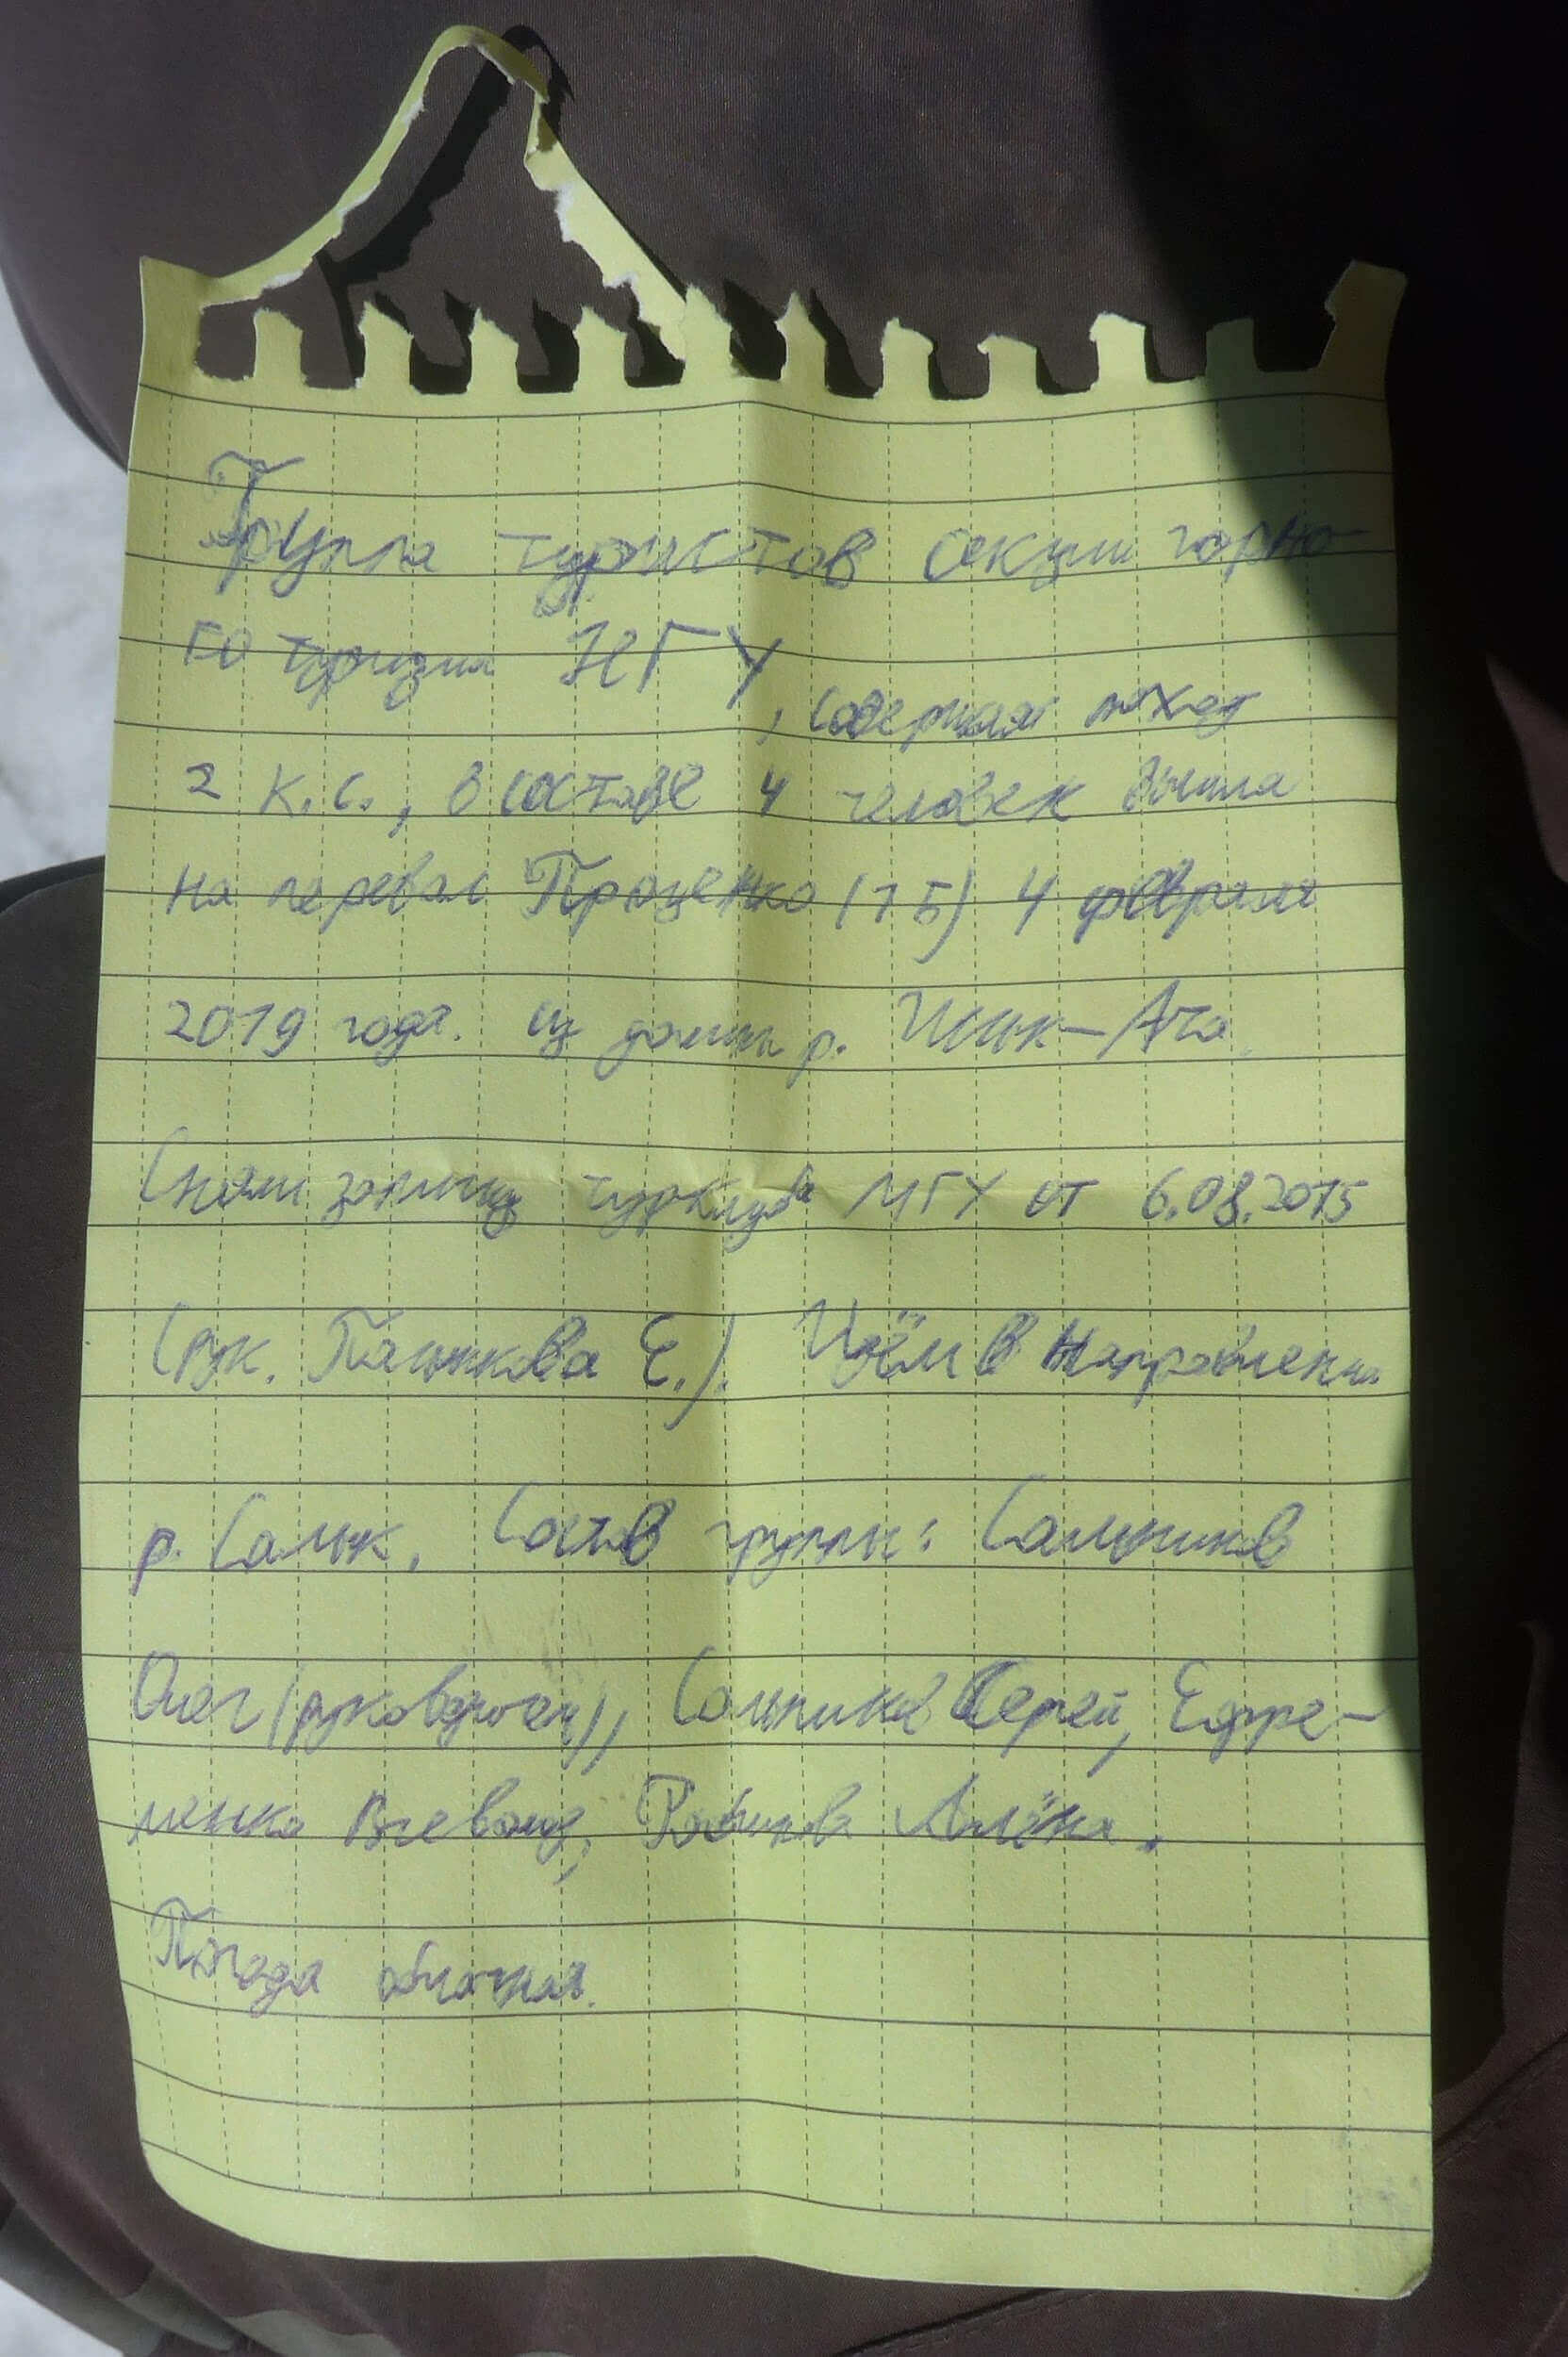 Группа туристов секции горно-
го туризма НГУ
, совершая поход
2 к.с., в составе 4 человек вышла
на перевал Проценко (1Б) 4 февраля
2019 года. из долины р. Иссык-Ата.
Сняли записку турклуба МГУ от 6.08.2015
(рук. Панькова Е.). Идём в направлении
р. Салык. Состав группы: Сальников
Олег (руководитель), Сальников Сергей, Ефре-
менко Всеволод, Алёна.
Погода облачная.